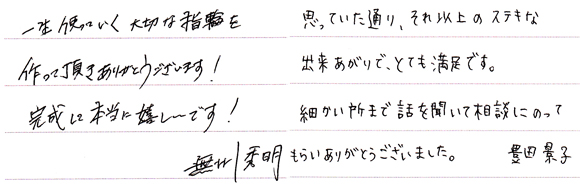 一生使っていく大切な指輪を
作って頂きありがとうございます!
完成して本当に嬉しーです!
秀明
思っていた通り、それ以上のステキな
出来あがりで、とても満足です。
細かい所まで話を聞いて相談にのって
もらいありがとうございました。 豊田景子